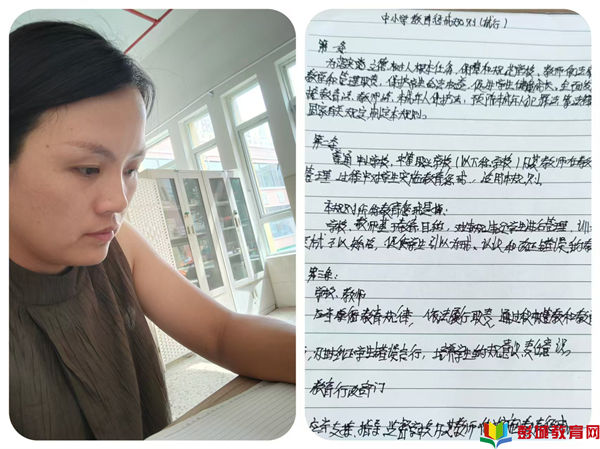 中小学教育惩戒规则(试行)
第一条
为落实立德树人根本任务,保障和规范学校、教师依法履
教育和管理职责,保护学生合法权益,促进学生健康成长、全面发
教育法、教师法、未成年人保护法、预防未成年人犯罪法等法律
国家有关规定,制定本规则。
第二条
普通中小学校、中等职业学校(以下称学校)及其教师在教
管理过程中对学生实施教育惩戒,适用本规则。
本规则所称教育惩戒是指
学校、教师基于教育目的,对违规违纪学生进行管理、训
方式予以矫治,促使学生引以为戒、认识和改正错误的教
第三条:
学校、教师
应当遵循教育规律,依法履行职责,通过积极管教和教
及时纠正学生错误言行,培养学生的规则意识、责任意识。
教育行政部门
支持、指导、监督学校及其教师依法
彭城教育网